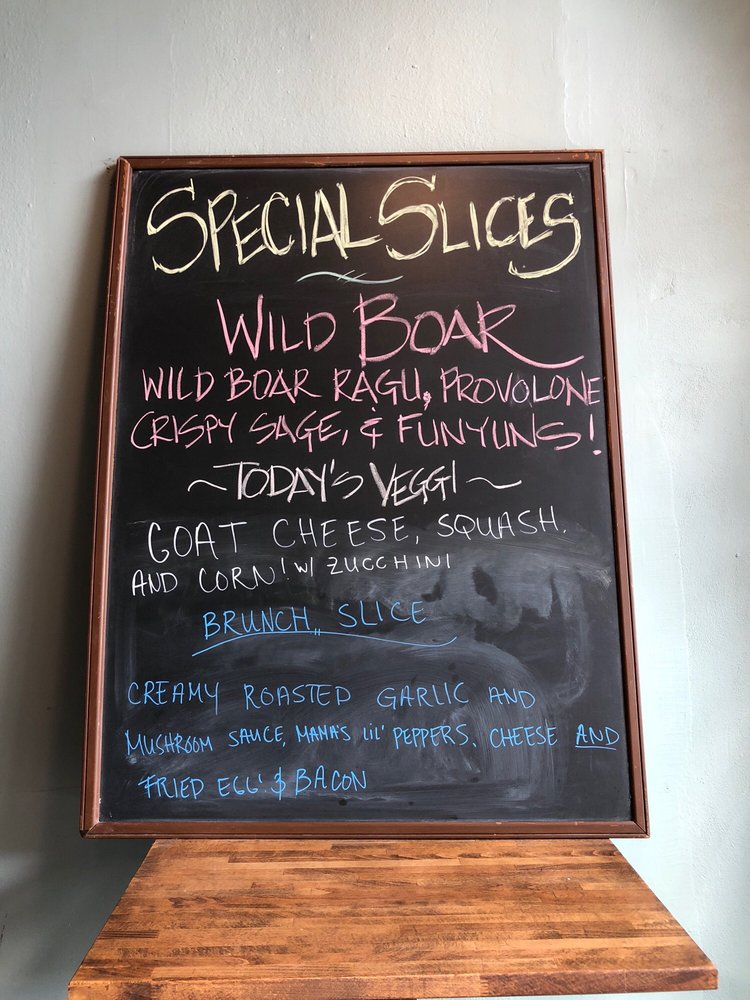 SPECIAL SLICES
WILD BOAR
WILD BOAR RAGU, PROVOLONE
CRISPY SAGE, & FUNYUNS!
~TODAY'S VEGGI~
GOAT CHEESE, SQUASH,
AND CORN! W/ ZUCCHINI
BRUNCH SLICE
CREAMY ROASTED GARLIC AND
MUSHROOM SAUCE, MAMA'S LIL' PEPPERS, CHEESE AND
FRIED EGG! & BACON